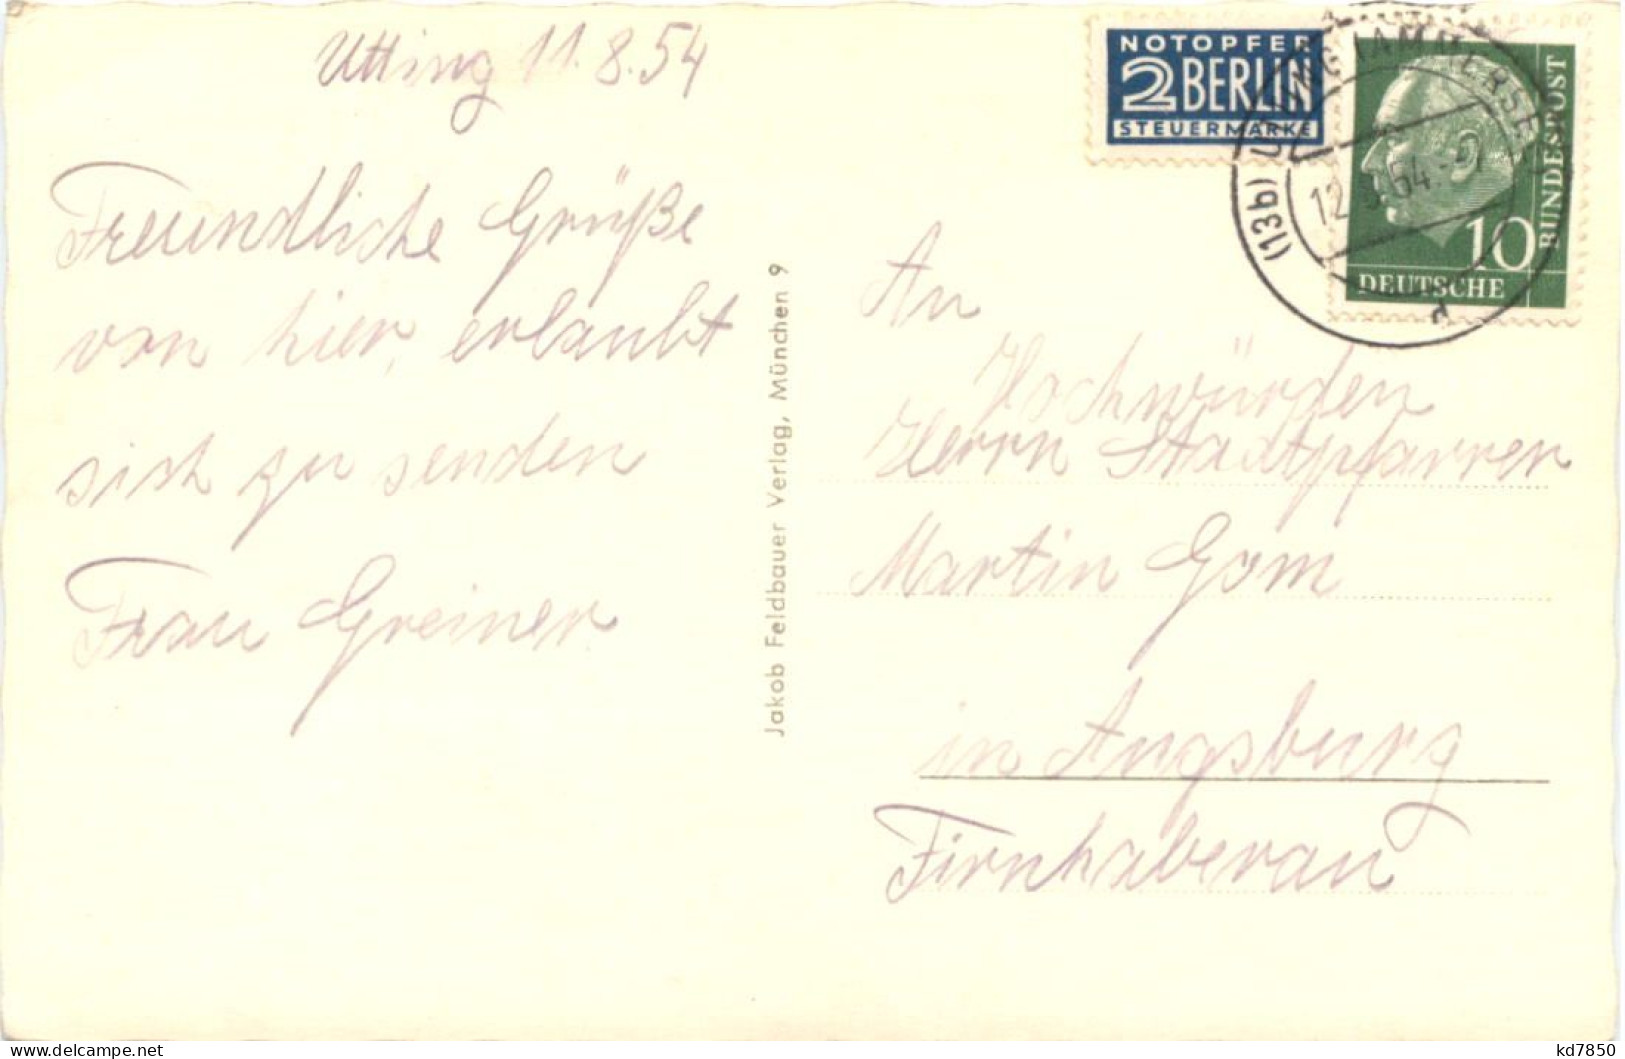 Utting 11.8.54
Freundliche Grüße
von hier, erlaubt
sich zu senden
Frau Greiner
Jakob Feldbauer Verlag, München 9
NOTOPFER
2 BERLIN
STEUERMARKE
10
DEUTSCHE
BUNDESPOST
(13b) UTTING (AMMERSEE)
12.8.54.-7
d
An
Hochwürden
Herrn Stadtpfarrer
Martin Gom
in Augsburg
Firnhaberau
kd7850